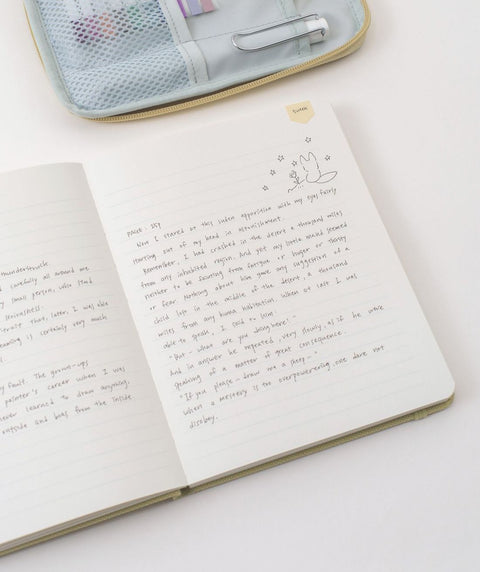 thunderstruck.
carefully all around me
small person, who
seriousness.
that, later, I was able
is certainly very much
fault. The grown-ups
painter's career when I was
never learned to draw anything,
outside and boas from the inside
PAGE :
Now I stared at this suden apposition with my eyes fairly
starting out of my head in astonishment.
Remember, I had crashed in the desert a thousand miles
from any inhabited region. And yet my little seemed
neither to be fainting from fatigue or hunger or thirst
or fear. Nothing about him gave any suggestion of a
child lost in the middle of the desert, a thousand
miles from any human habitation. When at last I was
able to speak, I said to him:
"But - what are you doing here?"
And in answer he repeated, very slowly, as if he were
speaking of a matter of great consequence.
"If you please - draw me a sheep - "
When a mystery is too overpowering, one dare not
disobey.